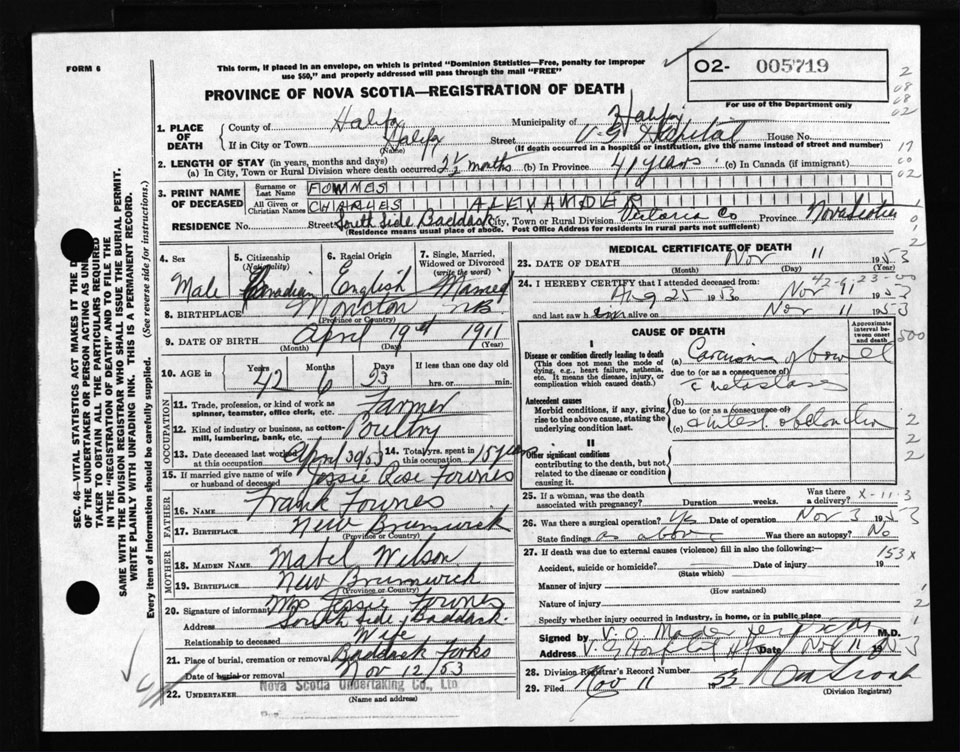 FORM 6
This form, if placed in an envelope, on which is printed "Dominion Statistics—Free, penalty for improper
use $50," and properly addressed will pass through the mail "FREE"
O2- 005719
For use of the Department only
PROVINCE OF NOVA SCOTIA—REGISTRATION OF DEATH
1. PLACE OF DEATH
County of Halifax Municipality of Halifax
If in City or Town Halifax Street V-G Hospital House No.
(Name) (If death occurred in a hospital or institution, give the name instead of street and number)
2. LENGTH OF STAY (in years, months and days)
(a) In City, Town or Rural Division where death occurred 2½ months (b) In Province 41 years (c) In Canada (if immigrant)
3. PRINT NAME OF DECEASED
Surname or Last Name FOWNES
All Given or Christian Names CHARLES ALEXANDER
RESIDENCE No. Street South Side Baddeck City, Town or Rural Division Victoria Co Province Nova Scotia
(Residence means usual place of abode. Post Office Address for residents in rural parts not sufficient)
4. Sex Male
5. Citizenship (Nationality) Canadian
6. Racial Origin English
7. Single, Married, Widowed or Divorced (write the word) Married
8. BIRTHPLACE Moncton N.B.
(Province or Country)
9. DATE OF BIRTH April 19 1911
(Month) (Day) (Year)
10. AGE in Years 42 Months 6 Days 23 If less than one day old hrs. or min.
OCCUPATION
11. Trade, profession, or kind of work as spinner, teamster, office clerk, etc. Farmer
12. Kind of industry or business, as cotton-mill, lumbering, bank, etc. Poultry
13. Date deceased last worked at this occupation April 1953 14. Total yrs. spent in this occupation 15 years
15. If married give name of wife or husband of deceased Jessie Rose Fownes
FATHER
16. Name Frank Fownes
17. Birthplace New Brunswick
(Province or Country)
MOTHER
18. MAIDEN NAME Mabel Wilson
19. BIRTHPLACE New Brunswick
(Province or Country)
20. Signature of informant Mrs Jessie Fownes
Address South Side Baddeck.
Relationship to deceased Wife
21. Place of burial, cremation or removal Baddeck Forks
Date of burial or removal Nov 12/53
22. UNDERTAKER Nova Scotia Undertaking Co., Ltd
(Name and address)
MEDICAL CERTIFICATE OF DEATH
23. DATE OF DEATH Nov 11 1953
(Month) (Day) (Year)
24. I HEREBY CERTIFY that I attended deceased from:
Aug 25 1953 to Nov 1953
and last saw him alive on Nov 11 1953
CAUSE OF DEATH
Approximate interval between onset and death
I
Disease or condition directly leading to death (This does not mean the mode of dying, e.g., heart failure, asthenia, etc. It means the disease, injury, or complication which caused death.)
(a) Carcinoma of bowel
due to (or as a consequence of)
c metastases
Antecedent causes
Morbid conditions, if any, giving rise to the above cause, stating the underlying condition last.
(b)
due to (or as a consequence of)
(c)
II
Other significant conditions contributing to the death, but not related to the disease or condition causing it.
25. If a woman, was the death associated with pregnancy? Duration weeks. Was there delivery?
26. Was there a surgical operation? yes Date of operation Nov 3 1953
State findings as above Was there an autopsy? No
27. If death was due to external causes (violence) fill in also the following:—
Accident, suicide or homicide? Date of injury 19
(State which)
Manner of injury
(How sustained)
Nature of injury
Specify whether injury occurred in industry, in home, or in public place
Signed by M.D.
Address V.G. Hospital Hfx Date Nov 11 1953
28. Division Registrar's Record Number
29. Filed Nov 11 1953
(Division Registrar)
SEC. 46—VITAL STATISTICS ACT MAKES IT THE
OF THE UNDERTAKER OR PERSON ACTING AS UNDER
TAKER TO OBTAIN ALL THE PARTICULARS REQUIRED
IN THE "REGISTRATION OF DEATH" AND TO FILE THE
SAME WITH THE DIVISION REGISTRAR WHO SHALL ISSUE THE BURIAL PERMIT.
WRITE PLAINLY WITH UNFADING INK. THIS IS A PERMANENT RECORD.
Every item of information should be carefully supplied. (See reverse side for instructions.)